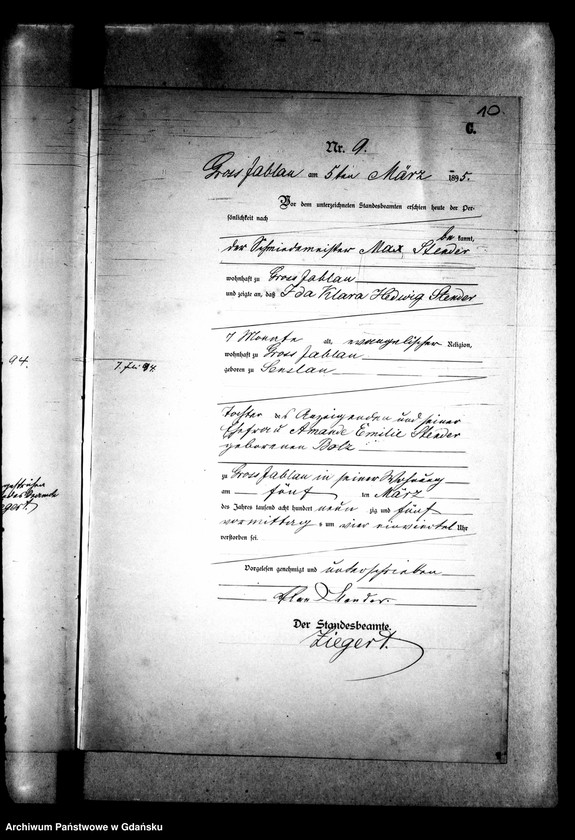 10.
C.
Nr. 9.
Gross Jablau am 5ten März 1895.
Vor dem unterzeichneten Standesbeamten erschien heute der Per-
sönlichkeit nach
be kannt,
der Schmiedemeister Max Stender
wohnhaft zu Gross Jablau
und zeigte an, daß Ida Klara Hedwig Stender
7 Monate alt, evangelischer Religion,
wohnhaft zu Gross Jablau
94.
7. Juli 94.
geboren zu
Tochter des Anzeigenden und seiner
Ehefrau Amande Emilie Stender
geborenen
zu Gross Jablau in seiner Wohnung
am fünf ten März
des Jahres tausend acht hundert neun zig und fünf
vormittag s um vier einviertel Uhr
verstorben sei.
Vorgelesen, genehmigt und unterschrieben
Stender.
Der Standesbeamte.
Ziegert.
Archiwum Państwowe w Gdańsku